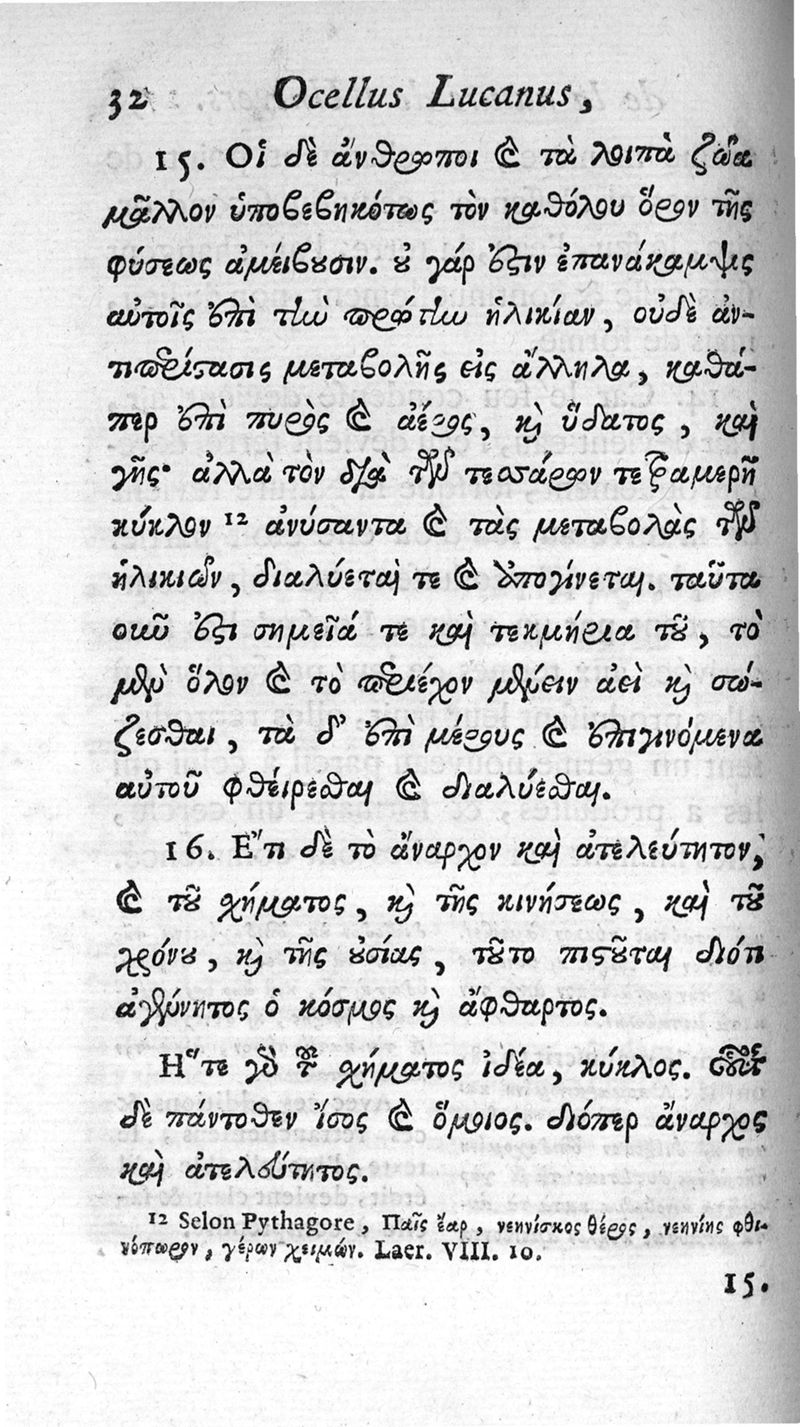 32 Ocellus Lucanus,
15. Οἱ δὲ ἄνθρωποι καὶ τὰ λοιπὰ ζῶα
μᾶλλον ὑποβεβηκότως τὸν καθόλου ὅρον τῆς
φύσεως ἀμείβουσιν. οὐ γάρ ἐστιν ἐπανάκαμψις
αὐτοῖς ἐπὶ τὴν πρώτην ἡλικίαν, οὐδὲ ἀν-
τιπερίστασις μεταβολῆς εἰς ἄλληλα, καθά-
περ ἐπὶ πυρὸς καὶ ἀέρος, καὶ ὕδατος, καὶ
γῆς· ἀλλὰ τὸν διὰ τῶν τεσσάρων τετραμερῆ
κύκλον 12 ἀνύσαντα καὶ τὰς μεταβολὰς τῶν
ἡλικιῶν, διαλύεται τε καὶ ἀπογίνεται. ταῦτα
οὖν ἐστι σημεῖά τε καὶ τεκμήρια τοῦ, τὸ
μὲν ὅλον καὶ τὸ περιέχον μένειν ἀεὶ καὶ σώ-
ζεσθαι, τὰ δ' ἐπὶ μέρους καὶ ἐπιγινόμενα
αὐτοῦ φθείρεσθαι καὶ διαλύεσθαι.
16. Ἔτι δὲ τὸ ἄναρχον καὶ ἀτελεύτητον,
καὶ τοῦ σχήματος, καὶ τῆς κινήσεως, καὶ τοῦ
χρόνου, καὶ τῆς οὐσίας, τοῦτο πιστοῦται διότι
ἀγέννητος ὁ κόσμος καὶ ἄφθαρτος.
Ἥτε γὰρ τοῦ σχήματος ἰδέα, κύκλος. οὗτος
δὲ πάντοθεν ἴσος καὶ ὅμοιος. διόπερ ἄναρχος
καὶ ἀτελεύτητος.
12 Selon Pythagore, Παῖς ἔαρ, νεηνίσκος θέρος, νεηνίης φθι-
νόπωρον, γέρων χειμών. Laer. VIII. 10.
15.